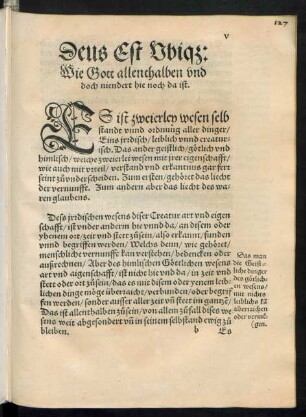 127
V
Deus Est Ubiqz:
Wie Gott allenthalben vnd
doch niendert hie noch da ist.
ES ist zweierley wesen selb
standt vnnd ordnung aller dinger/
Eins jrdisch/ leiblich vnnd creatur-
isch. Das ander geistlich/ götlich vnd
himlisch/ welche zweierlei wesen mit jrer eigenschafft/
wie auch mit vrteil/ verstand vnd erkantnus gar fert
seint zůunderscheiden. Zum ersten/ gehöret das liecht
der vernunffte. Zum andern aber das liecht des wa-
ren glaubens.
Dess jrdischen wesens diser Creatur art vnd eigen
schafft/ ist vnder anderm hie vnnd da/ an disem oder
yhenem ort/ zeit vnd stett zůsein/ also erkant/ funden
vnnd begriffen werden/ Welchs denn/ wie gehöret/
menschliche vernunfft kan verstehen/ bedencken oder
außrechten/ Aber des himlischen Göttlichen wesens
art vnd eigenschafft/ ist nicht hie vnd da/ in zeit vnd
stett oder ort zůsein/ das es mit disem oder yenem leib-
lichen dinge möge überraicht/ verbunden/ oder begrif
fen werden/ sonder ausser aller zeit vñ stett im gantzẽ/
Das ist allenthalben zůsein/ von allem zůfall dises we
sens weit abgesondert vñ in seinem selbstand ewig zů
bleiben.
Das man
die Geist-
liche dinger
des götlich-
en wesens/
mit nichte
leiblichs sã
überraichen
oder vermö-
gen.
b
Es